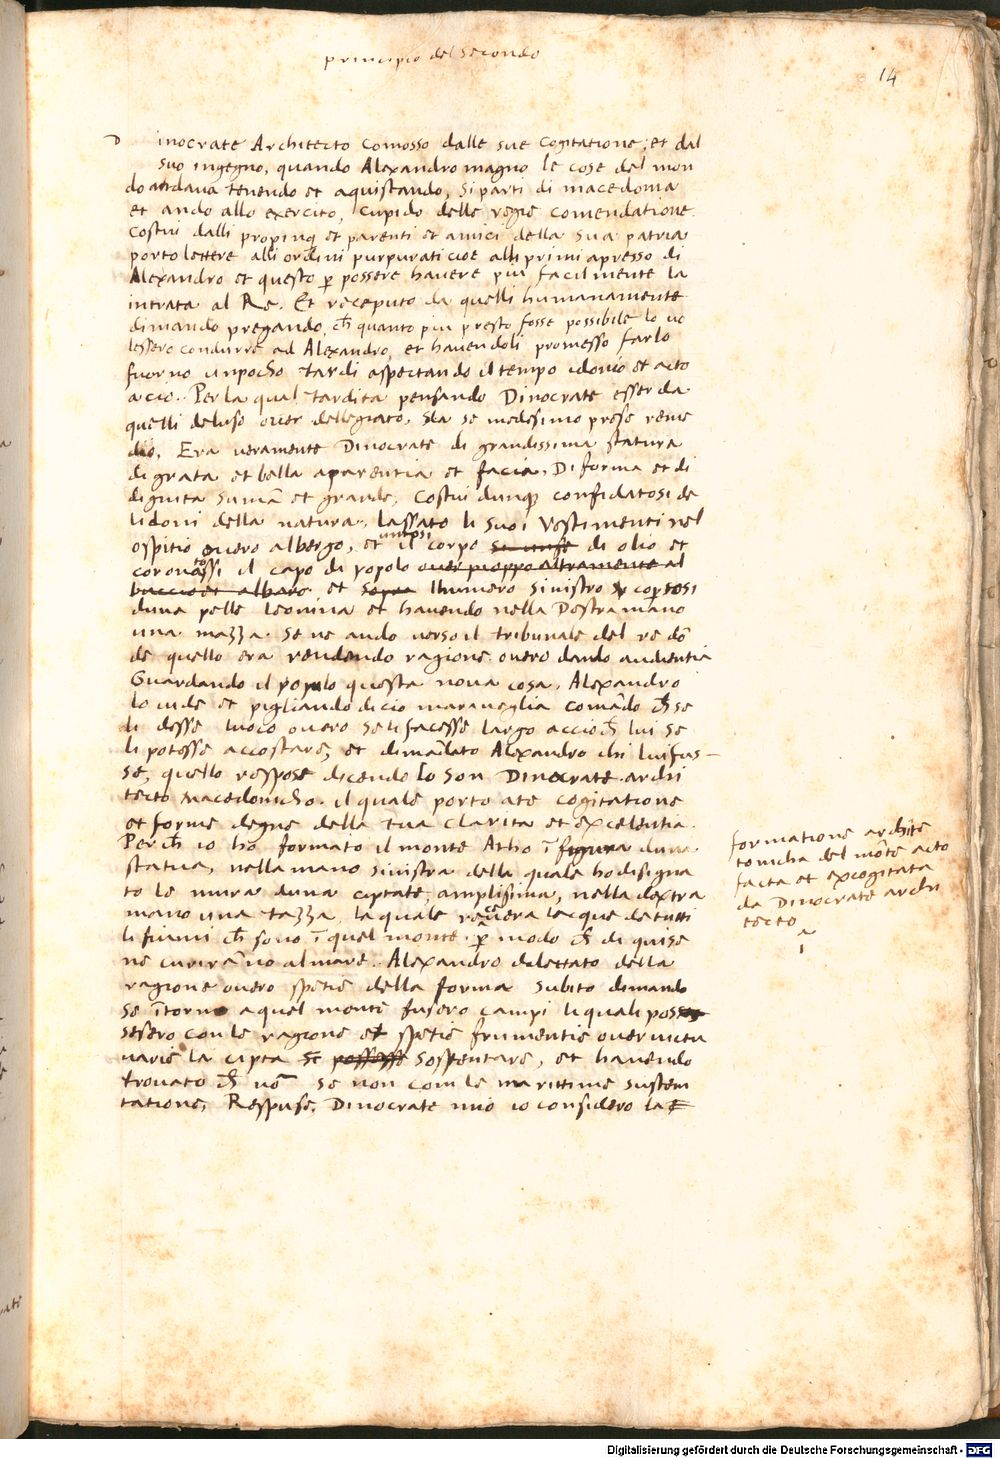 principio del secondo
14
D inocrate Architecto comosso dalle sue cogitatione; et dal
suo ingegno, quando Alexandro magno le cose del mon
do andava tenendo et aquistando, si parti di macedonia
et ando allo exercito, cupido delle regie comendatione
Costui dalli propinq et parenti et amici della sua patria
porto lettere alli ordini purpurati cioe alli primi apresso di
Alexandro et questo p possere havere piu facilmente la
intrata al Re. Et receputo da quelli humanamente
dimando pregando, ch quanto piu presto fosse possibile lo vo
lessero condurre ad Alexandro, et havendoli promesso farlo
fuorno unpocho tardi aspectando il tempo idonio et acto
acio. Per la qual tardita pensando Dinocrate esser da
quelli deluso over dellegiato, da se medesimo prese reme
dio. Era veramente Dinocrate di grandissima statura
di grata et bella aparentia et facia, Di forma et di
dignita suma et grande, Costui dunq confidatosi de
li doni della natura, lassato li suoi vestimenti nel
ospitio overo albergo, et unto si il corpo si unse di olio et
coronatossi il capo di popolo over pioppo altramente al
buccio et albaro, et sopra lhumero sinistro copertosi
duna pelle leonina et havendo nella destra mano
una mazza. se ne ando verso il tribunale del re do
de quello era rendendo ragione overo dando audientia
Guardando il popolo questa nova cosa, Alexandro
lo vide et pigliando di cio maraveglia comado ch se
li desse luoco overo se li facesse largo accioch lui se
li potesse accostare, et dimadato Alexandro chi lui fus-
se, quello respose dicendo Io son Dinocrate archi
tecto macedonicho. il quale porto a te cogitatione
et forme degne della tua clarita et excelentia.
Perch io ho formato il monte Atho i figura duna
statua, nella mano sinistra della quale ho disigna
to le mura duna ciptate amplisima, nella dextra
mano una tazza, la quale recevera le acque de tutti
li fiumi ch sono i quel monte. p modo ch di qui se
ne curirano al mare. Alexandro delettato della
ragione overo spetie della forma subito dimando
se itorno a quel monte fusero campi li quali
sesero con le ragione et spetie frumentie over victu
varie la cipta se possesse sostentare, et havendo
trovato ch no se non con le marittime susten
tatione, Respuse, Dinocrate mio io considero la
formatione archite
tonicha del mote acto
facta et excogitata
da Dinocrate archi
tecto
Digitalisierung gefördert durch die Deutsche Forschungsgemeinschaft - DFG